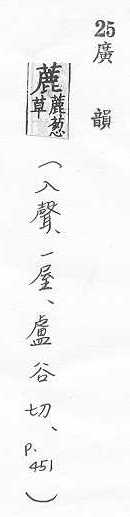 25 廣韻
蔍蔍葱草(入聲、一屋、盧谷切、p. 451)